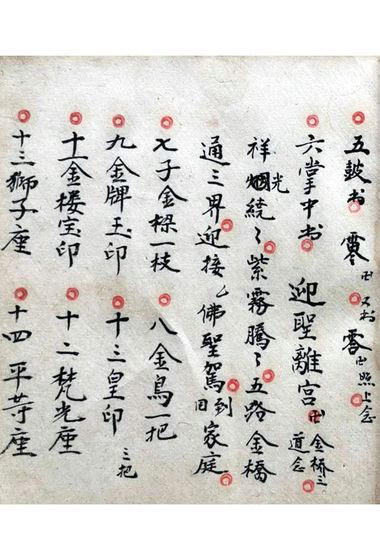 五鼓书 卍 卍照上念
六掌中书 迎聖離宮卍金橋三道念
祥光繞〻紫霧騰〻五路金橋
通三界迎接佛聖駕回到家庭
七子金樑一枝 八金鳥一把
九金牌玉印 十三皇印三把
十一金楼宝印 十二梵光座
十三獅子座 十四平等座